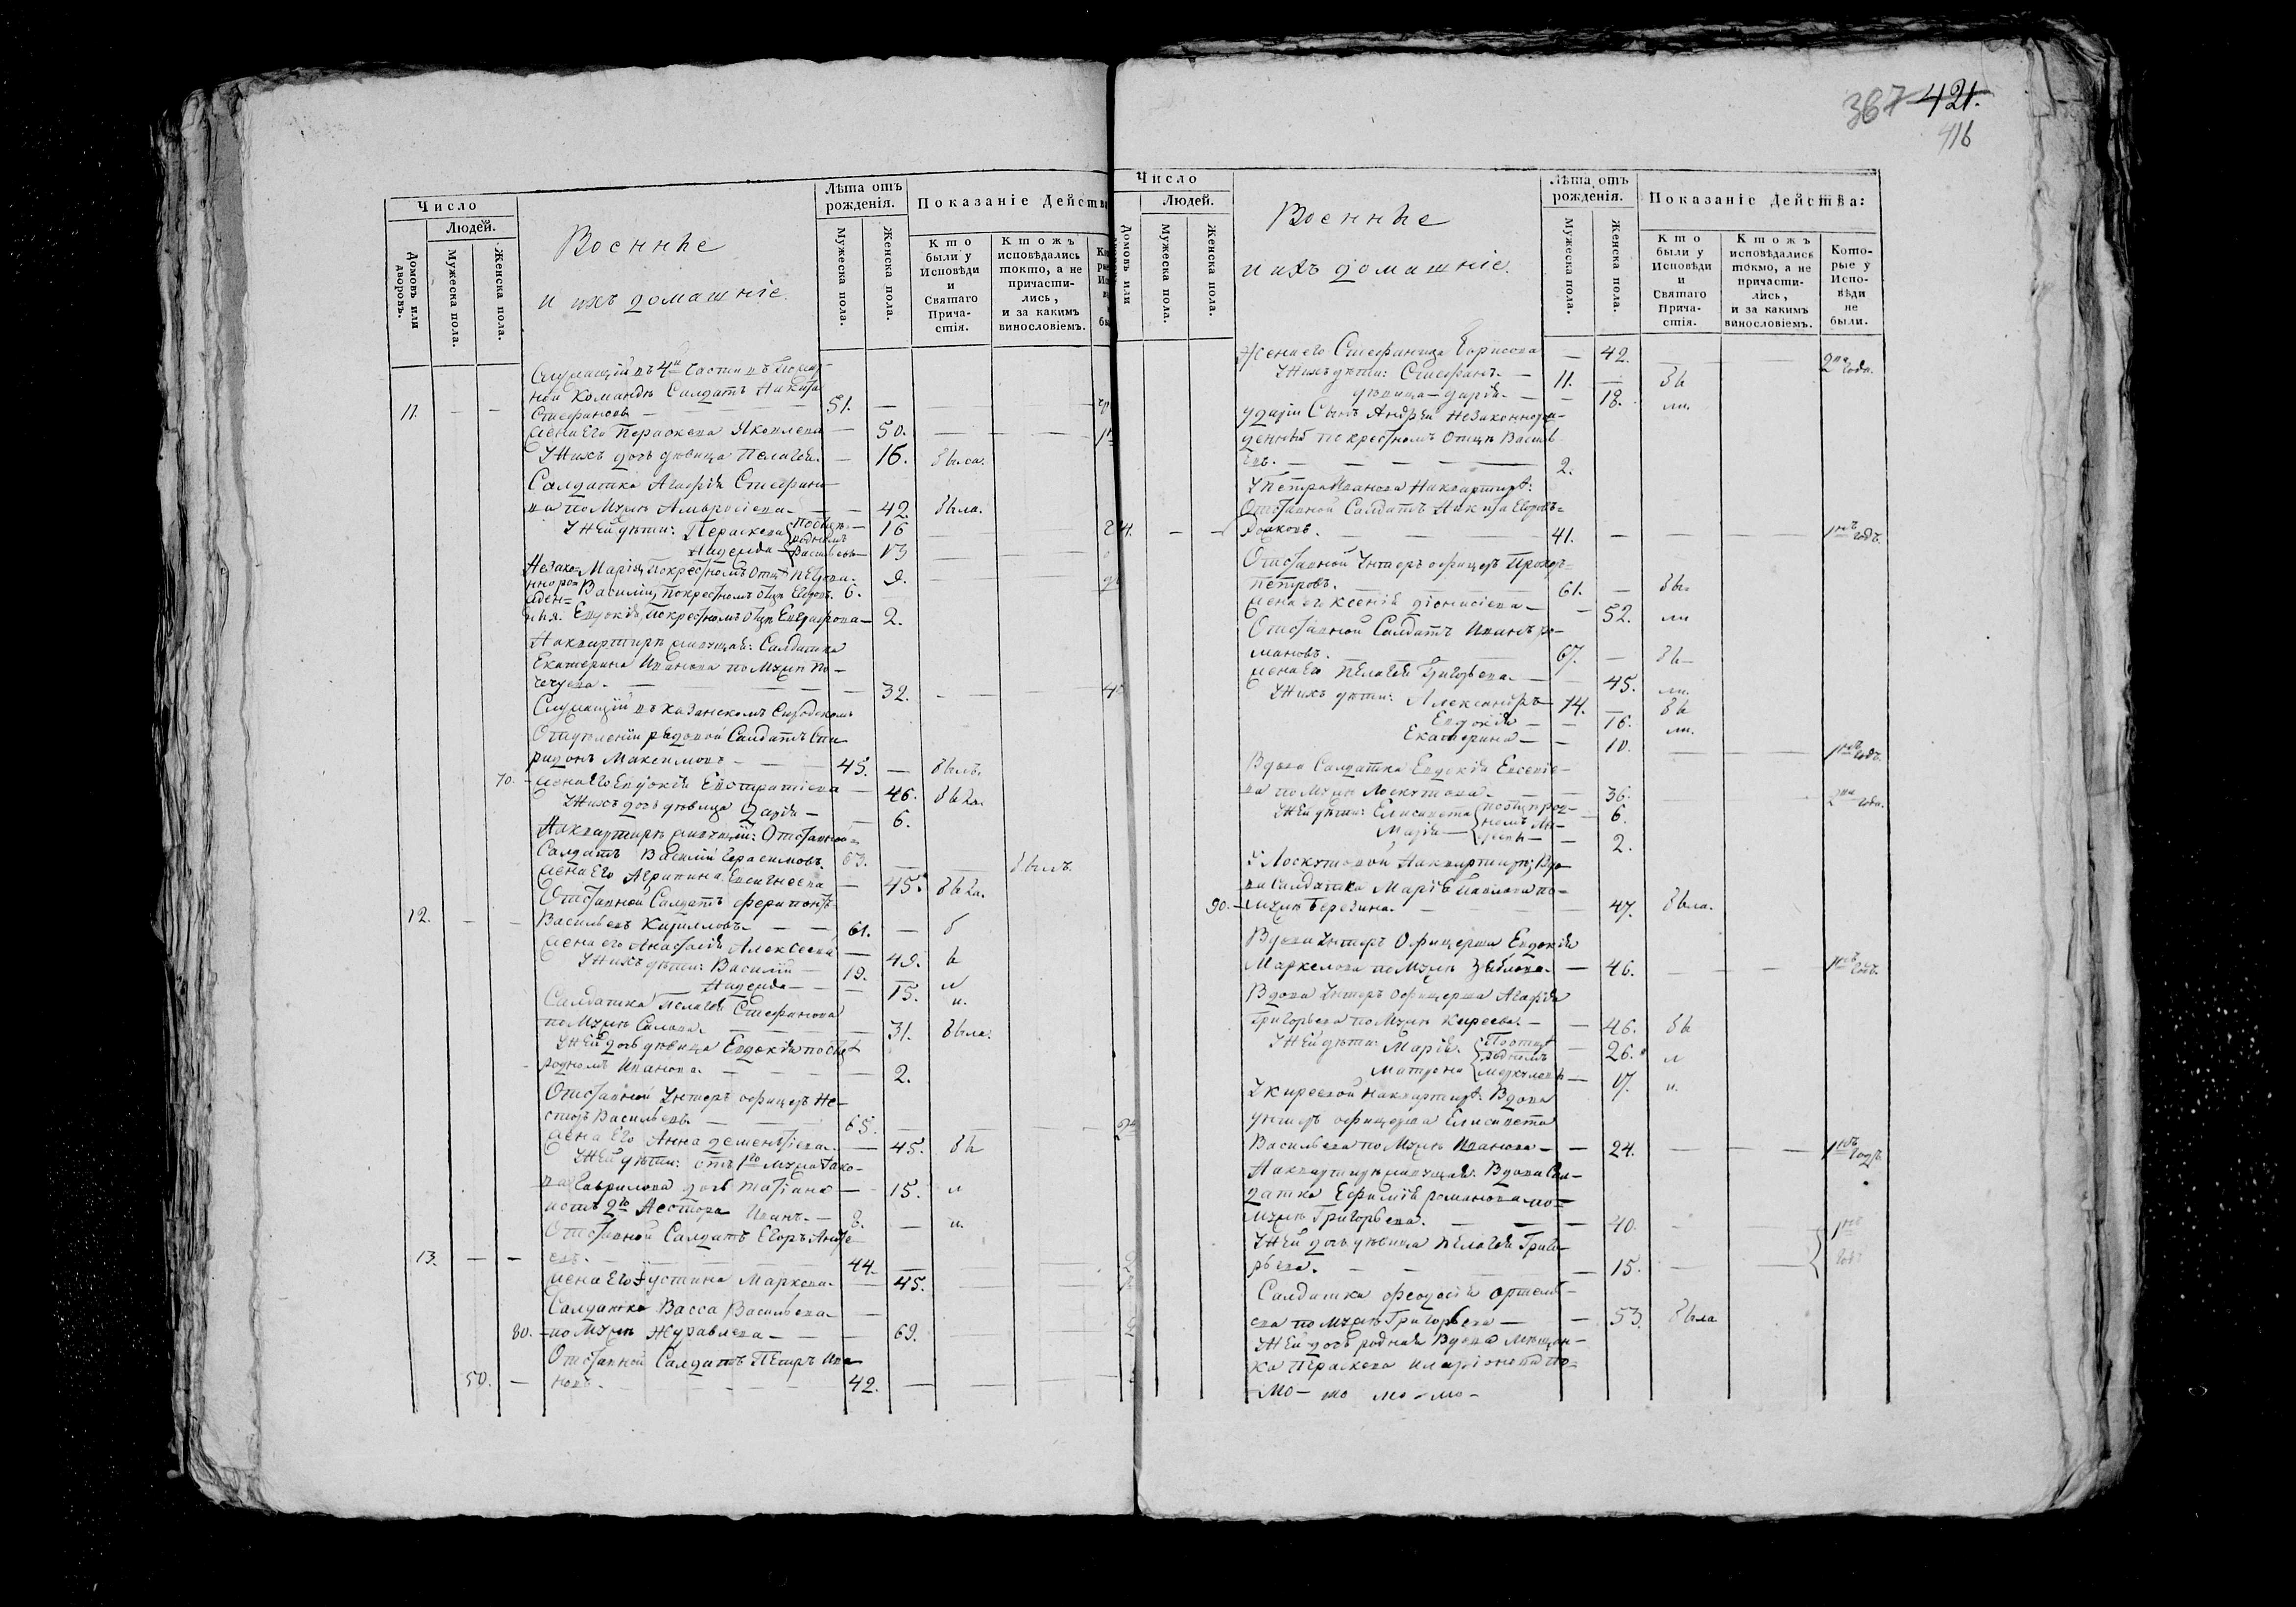 367 421.
416
Число
Людей.
Домовъ или дворовъ.
Мужеска пола.
Женска пола.
Военные
и ихъ домашніе.
Лѣта отъ рожденія.
Мужеска пола.
Женска пола.
Показаніе Дейст
Кто были у Исповѣди и Святаго Прича-стія.
Ктожъ исповѣдались токмо, а не причасти-лись, и за какимъ винословіемъ.
Служащій въ 4й части въ
ной командѣ Салдатъ Никита
11. — — Стефановъ — 51. —
жена его Параскева Яковлева — 50.
У нихъ дочь девица Пелагея. — 16. была.
Салдатка Агафія Стефано-
ва по мужѣ Амвросіева — 42. была.
У ней дѣти: Параскева по отцѣ — 16
Надежда родномъ Васильевы — 13
Незако- Марія, по крестномъ отцѣ 9.
нноро- Василій, по крестномъ отцѣ 6.
жден-
ныя. Евдокія, по крестномъ отцѣ Евграфова — 2.
На квартирѣ живущая: Салдатка
Екатерина Иванова по мужѣ По-
— 32.
Служащій въ казанскомъ
Отдѣленіи рядовой Салдатъ Спи
ридонъ Максимовъ — 45. — былъ.
70. — жена его Евдокія Евстратіева — 46. была.
У нихъ дочь девица Дарія — 6.
На квартирѣ живущій: Отставной
Салдатъ Василій Герасимовъ. 63. — былъ.
жена его Агрипина — 45. была.
Отставной Салдатъ Ферапонтъ
12. — — Васильевъ Кириловъ. — 61. — б
жена его Анастасія Алексеева — 49. ы
У нихъ дѣти: Василій — 19. — л
Надежда — 15. и.
Салдатка Пелагея Стефанова
по мужѣ — 31. была.
У ней дочь девица Евдокія по отцѣ
родномъ Иванова. — 2.
Отставной Унтеръ офицеръ Не-
сторъ Васильевъ — 65.
жена его Анна Дементіева. — 45. бы
У ней дѣти: отъ 1го мужа Іако-
ва Гаврилова дочь Татіана — 15. л
и отъ 2го Нестора Иванъ. — 8. — и.
Отставной Салдатъ Егоръ Андре
13. — — евъ. — 44. —
жена его Іустина Маркова. — 45.
Салдатка Васса Васильева —
80. — по мужѣ Журавлева — 69.
Отставной Салдатъ Петръ Ива
50. — новъ. — 42.
Число
Людей.
Домовъ или
Мужеска пола.
Женска пола.
Военные
и ихъ домашніе.
Лѣта отъ рожденія.
Мужеска пола.
Женска пола.
Показаніе Действа:
Кто были у Исповѣди и Святаго Прича-стія.
Ктожъ исповѣдались токмо, а не причасти-лись, и за какимъ винословіемъ.
Кото-рые у Испо-вѣди не были.
Жена его Стефанида Борисова — 42. — 2ва года.
У нихъ дѣти: Стефанъ. — 11. — бы
девица Дарія. — 18. ли.
У Даріи Сынъ Андрей незаконнорож-
денный по крестномъ отцѣ Василь
евъ. — 2.
У Петра Иванова на квартирѣ:
Отставной Салдатъ Никита Егоровъ
14. — — — 41. — 1нъ годъ.
Отставной Унтеръ офицеръ Прохоръ
Петровъ. — 61. — бы-
жена его Ксенія Діонисіева — 52. ли
Отставной Салдатъ Иванъ Ро-
мановъ. — 67. — бы-
жена его Пелагея Григорьева. — 45. ли.
У нихъ дѣти: Александръ — 14. — бы
Евдокія — 16. ли.
Екатерина — 10. — 1нъ годъ.
Вдова Салдатка Евдокія Евсевіе-
ва по мужѣ Лоскутова. — 36. 2ва года.
У ней дѣти: Елисавета по отцѣ род- — 6.
Марія номъ — 2.
У Лоскутовой на квартирѣ: Вдо-
ва Салдатка Марія Павлова по-
90. — мужѣ Березина. — 47. была.
Вдова Унтеръ Офицерша Евдокія
Маркелова по мужѣ — 46. — 1нъ годъ.
Вдова Унтеръ офицерша Агафія
Григорьева по мужѣ Киреева. — 46. бы
У ней дѣти: Марія по отцѣ — 26. л
Матрона родномъ — 17. и.
У Киреевой на квартирѣ: Вдова
унтеръ офицерша Елисавета
Васильева по мужѣ Иванова — 24. — 1нъ годъ.
На квартирѣ живущая: Вдова Сал-
датка Ефимія Романова по-
мужѣ Григорьева. — 40. — 1нъ
У ней дочь девица Пелагея Григо-
рьева. — 15. — годъ
Салдатка Феодосія Артемь-
ева по мужѣ Григорьева — 53. была
У ней дочь родная Вдова мѣщан-
ка Параскева Иларіонова по-